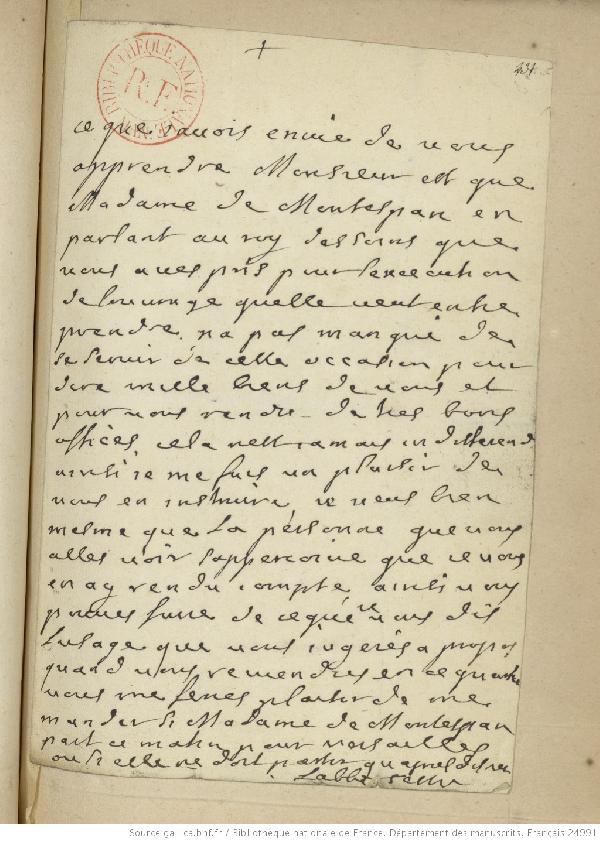 +
BIBLIOTHÈQUE NATIONALE
R.F.
ce que javois envie de vous
apprendre Monsieur est que
Madame de Montespan en
parlant au roy des soins que
vous aves pris pour lexecution
de louurage quelle veut entre
prendre na pas manqué de
se servir de cette occasion pour
dire mille biens de vous et
pour vous rendre de tres bons
offices, cela nest jamais indifferend
ainsi je me fais un plaisir de
vous en instruire, je veus bien
mesme que la personne que vous
alles voir sapperçoive que je vous
en ay rendu compte, ainsi vous
pouves faire de ce que je vous dis
lusage que vous jugerés a propos
quand vous reviendres en ce quartier
vous me feres plaisir de me
mander si Madame de Montespan
part ce matin pour versailles
ou si elle ne doit partir quapres disner
Labbé
Source gallica.bnf.fr / Bibliothèque nationale de France. Département des manuscrits. Français 24991